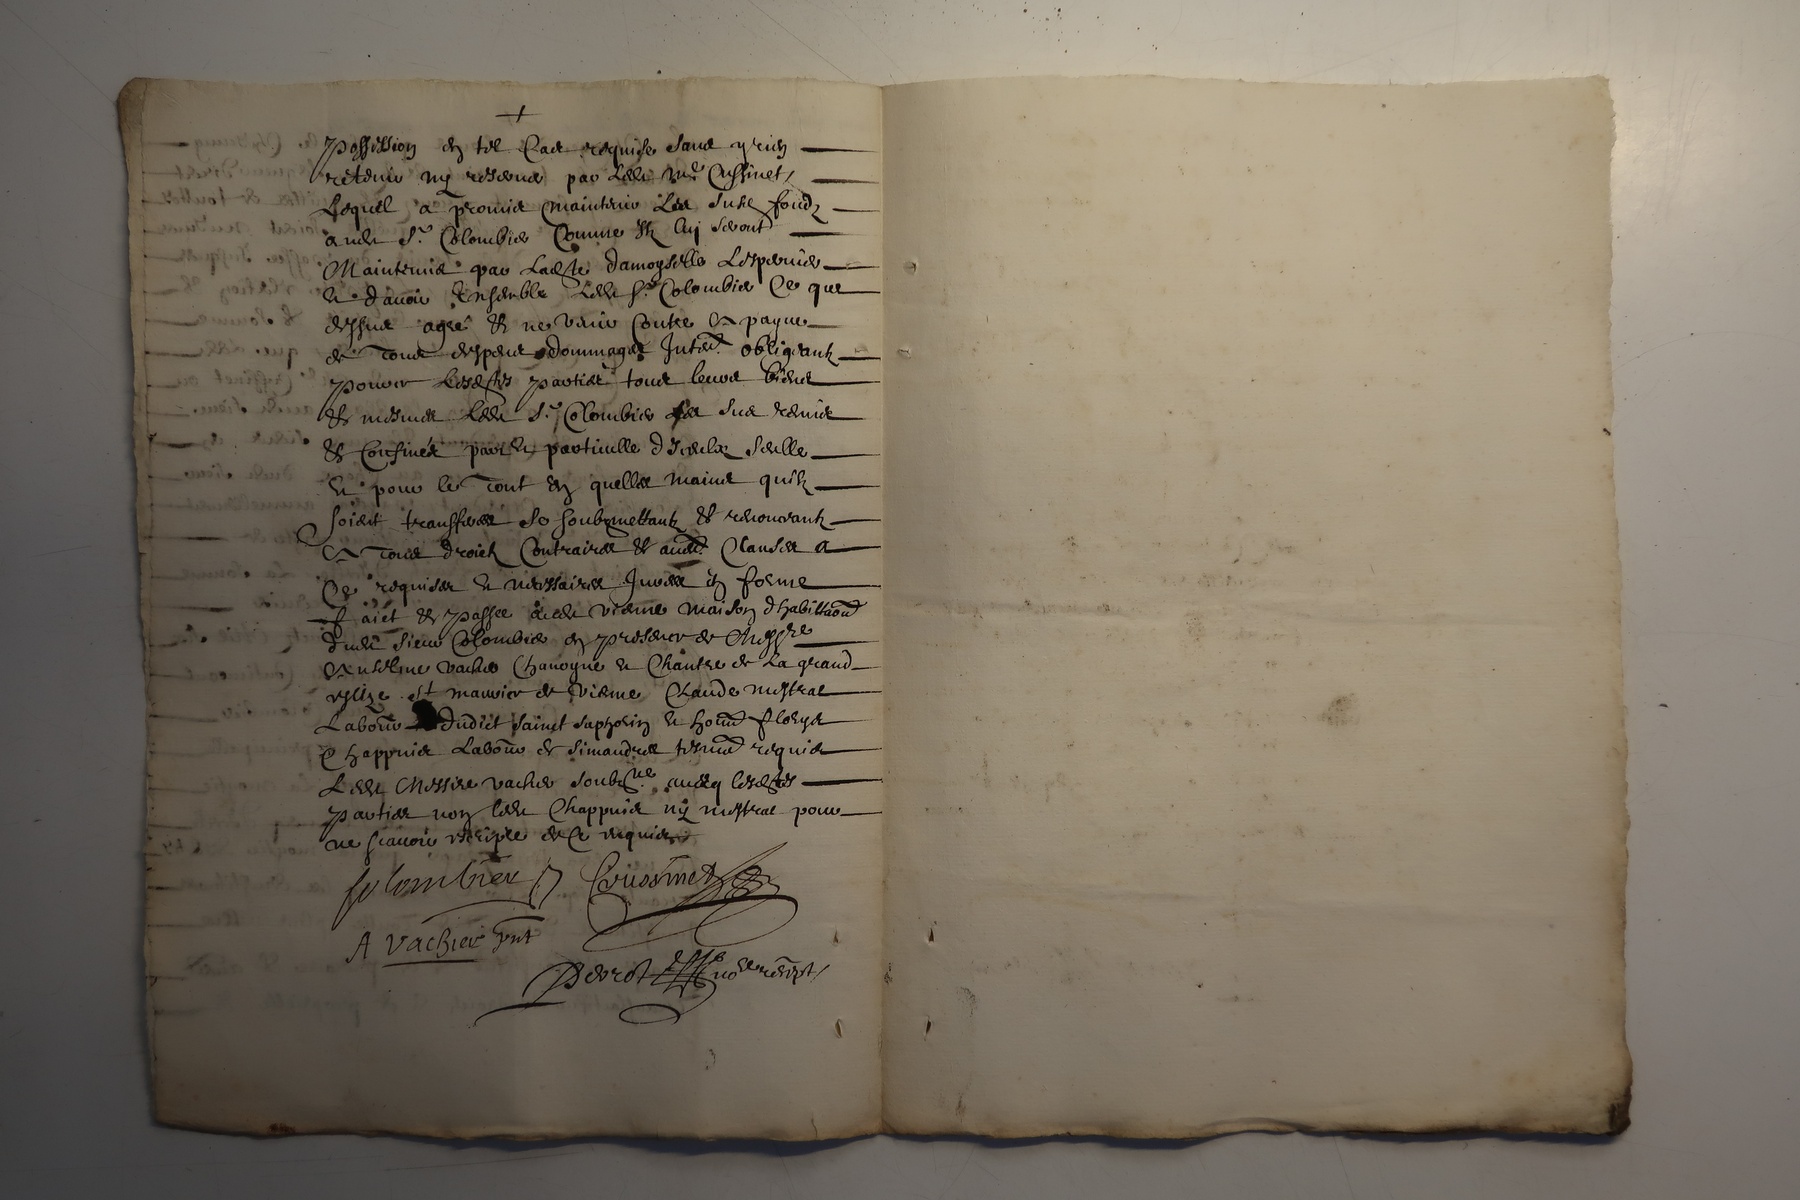 possession en tel cas requise sans y rien
retenir ny reserver par ledt Mr Cussinet
Lequel a promis maintenir les susd fondz
audt Sr Colombier comme ilz luy seront
Maintenus par ladte damoyselle
et d'avoir ensemble ledt Sr Colombier ce que
dessus agreé et ne venir contre a payne
de tous despens dommages Interetz obligeantz
pour ce lesdtes parties tous leurs biens
et mesmes ledt Sr Colombier les sus remis
et confinés partie particulle d'iceulx seulle
et pour le tout en quelles mains quilz
soient transferés se soubzmettantz et renonceantz
a tous droictz contraires et aud clauses a
ce requises et necessaires Jurées en forme
faict et passé audt vienne maison d'habitaon
dudt sieur Colombier en presence de Messre
Anselme vachier Chanoyne et Chantre de La grand
esglize St maurice de vienne Claude mestral
Laboureur dudict sainct saphorin et hond fleury
Chappuis Laboureur de simandres tesmoingz requis
Ledt Messire vachier soubzne avecq lesdtes
parties non ledt Chappuis ny mestral pour
ne scavoir escripre de ce requis
Colombier Cussinet
A vachier pnt
Perrot nore recept